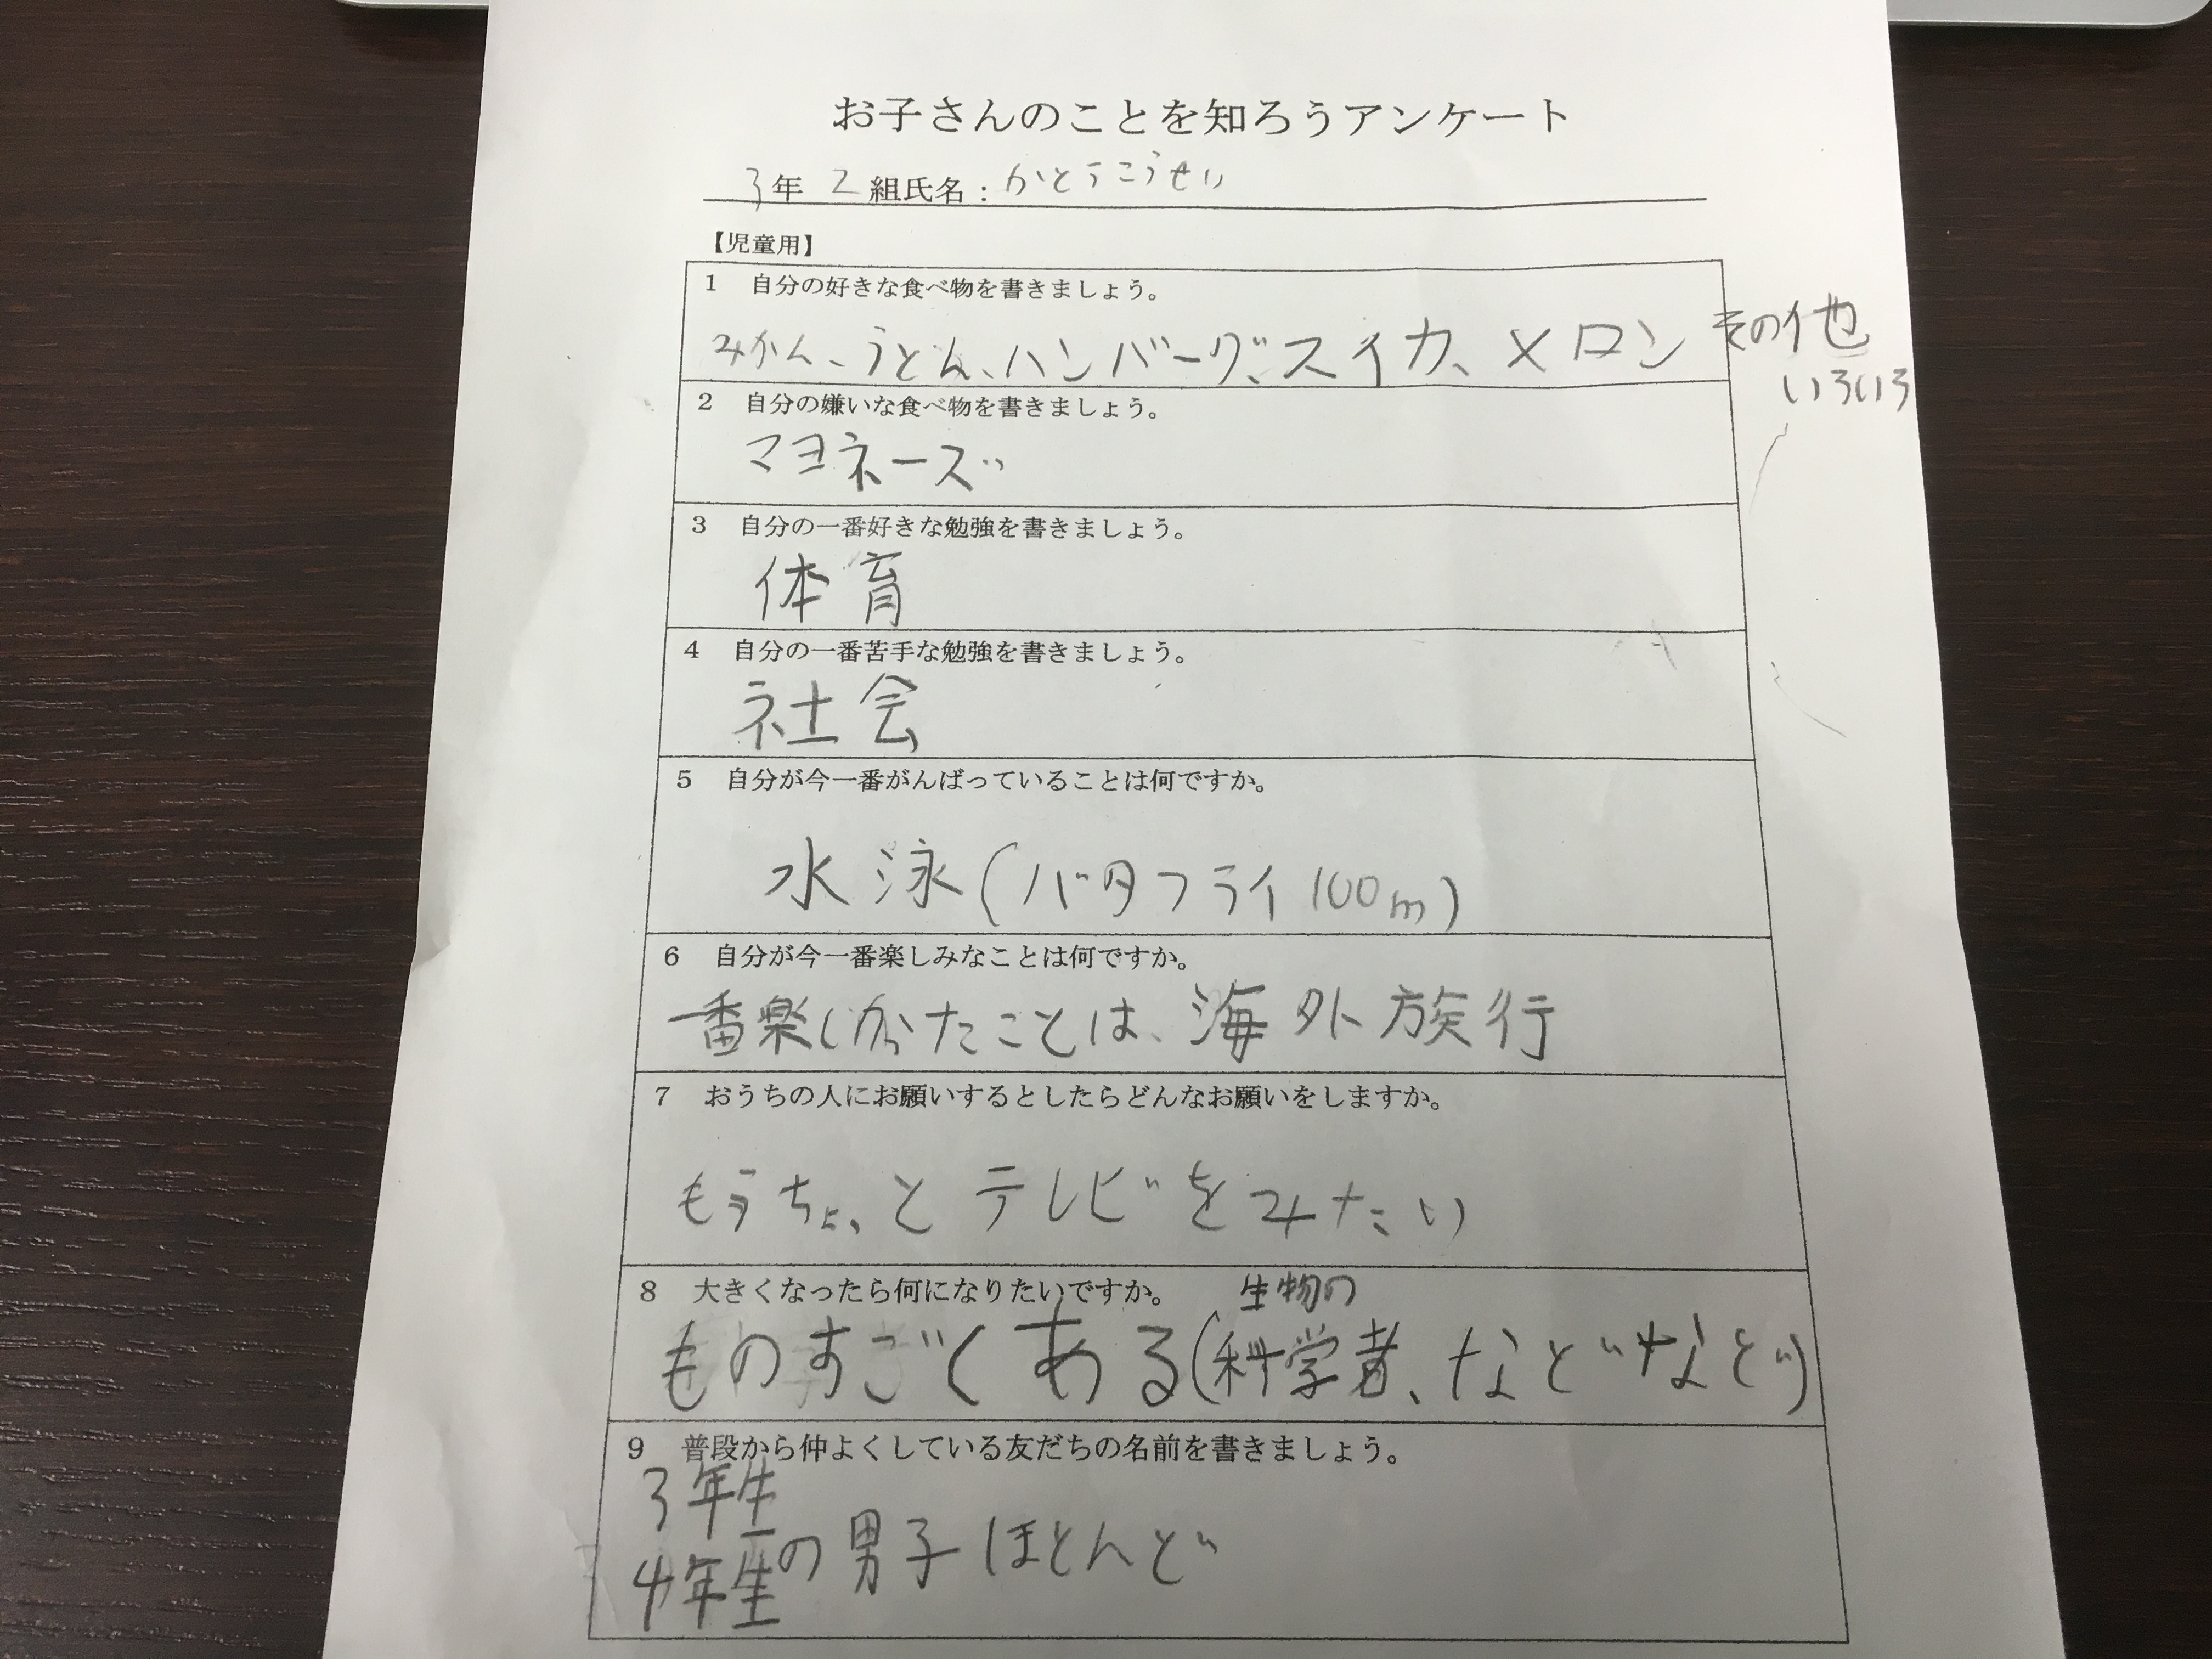 お子さんのことを知ろうアンケート
3年 2組氏名：かとうこうせい
【児童用】
1 自分の好きな食べ物を書きましょう。
みかん、うどん、ハンバーグ、スイカ、メロン その他
いろいろ
2 自分の嫌いな食べ物を書きましょう。
マヨネーズ
3 自分の一番好きな勉強を書きましょう。
体育
4 自分の一番苦手な勉強を書きましょう。
社会
5 自分が今一番がんばっていることは何ですか。
水泳(バタフライ100m)
6 自分が今一番楽しみなことは何ですか。
一番楽しかったことは、海外旅行
7 おうちの人にお願いするとしたらどんなお願いをしますか。
もうちょっとテレビをみたい
8 大きくなったら何になりたいですか。
生物の
ものすごくある(科学者、などなど)
9 普段から仲よくしている友だちの名前を書きましょう。
3年生
4年生の男子ほとんど